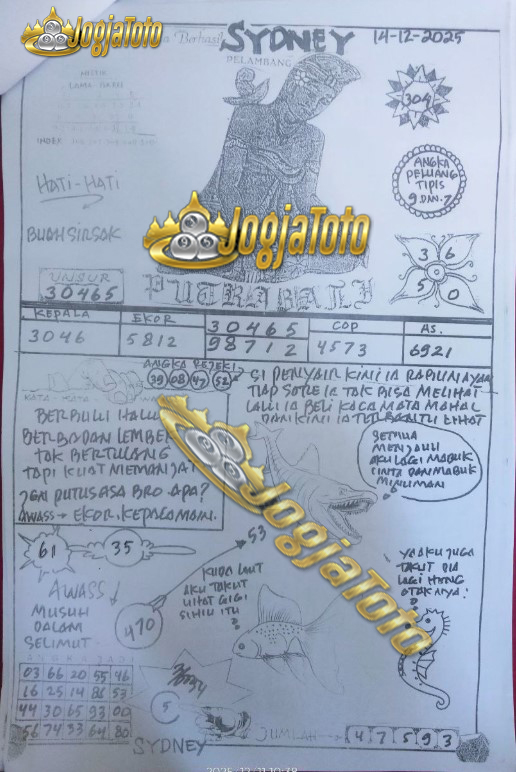 JogjaToto
Berhasil SYDNEY 14-12-2025
PELAMBANG
304
INDEX
HATI-HATI
ANGKA
PELUANG
TIPIS
9 DAN 7
BUAH SIRSAK
JogjaToto
3 6
5 0
UNSUR
30465
PUTRA BALI
KEPALA EKOR 30465 COP AS.
3046 5812 98712 4573 6921
ANGKA REJEKI
39 08 47 52
SI PENYAIR KINI IA RABUN AYAM
TIAP SORE IA TAK BISA MELIHAT
LALU IA BELI KACA MATA MAHAL
DAN KINI IA
LIHAT
KATA - KATA
BERBULU HALUS
BERBADAN LEMBEK
TAK BERTULANG
TAPI KUAT MEMANJAT
PUTUS ASA BRO. APA?
AWASS → EKOR. KEPALA MAIN.
SEMUA
MENJAUH
AKU LAGI MABUK
CINTA DAN MABUK
MINUMAN
61 35
53
JogjaToto
KUDA LAUT
AKU TAKUT
LIHAT GIGI
SI HIU ITU
YA AKU JUGA
TAKUT DIA
LAGI
OTAKNYA.
AWASS
MUSUH
DALAM
SELIMUT
470
ANGKA JADI
03 66 20 55 46
16 25 14 86 53
44 30 65 93 00
56 74 33 64 80
5
SYDNEY
JUMLAH → 4 7 5 9 3